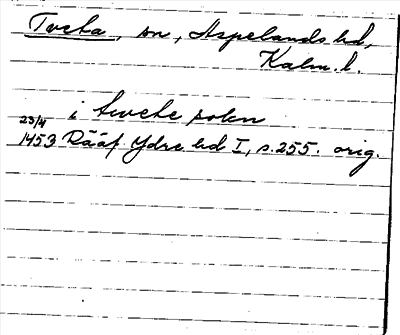 Tveta, sn, Aspelands hd,
Kalm. l.
23/4 i twete sokn
1453 Rääf Ydre hd I, s. 255. orig.